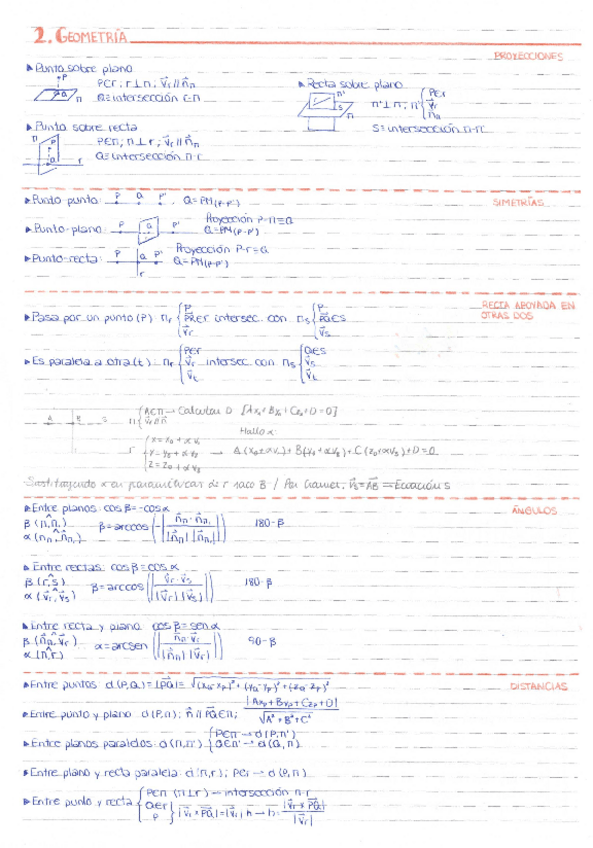 2. GEOMETRÍA
PROYECCIONES
▸ Punto sobre plano
P∈r; r⊥π; v⃗r // n⃗π
Q≡intersección r-π
▸ Recta sobre plano
π'⊥π; π' {P∈r v⃗r n⃗π
S≡intersección π-π'
▸ Punto sobre recta
P∈π; π⊥r; v⃗r // n⃗π
Q≡intersección π-r
▸ Punto punto: P Q P' . Q=PM(P-P')
SIMETRÍAS
▸ Punto-plano: P P' Proyección P-π≡Q
Q=PM(P-P')
▸ Punto-recta: P Q P' Proyección P-r≡Q
r Q=PM(P-P')
RECTA APOYADA EN
OTRAS DOS
▸ Pasa por un punto (P) πr {P P⃗R∈r v⃗r intersec. con πs {P P⃗Q∈s v⃗s
▸ Es paralela a otra (t) πr {P∈r v⃗r v⃗t intersec con πs {Q∈s v⃗s v⃗t
A B S π {A∈π → Calcular D [Ax₀+By₀+Cz₀+D=0]
Hallo α:
r {x=x₀+αv₁ y=y₀+αv₂ z=z₀+αv₃ → A(x₀+αv₁)+B(y₀+αv₂)+C(z₀+αv₃)+D=0
Sustituyendo α en paramétricas de r saco B / Por Cramer; v⃗s=A⃗B ⇒ Ecuación s
ÁNGULOS
▸ Entre planos: cos β=-cos α
β (π,π,)
α (n⃗π, n⃗π,) β=arccos (-|n⃗π·n⃗π,| / |n⃗π| |n⃗π,|) 180-β
▸ Entre rectas: cos β=cos α
β (r,s)
α (v⃗r, v⃗s) β=arccos (|v⃗r·v⃗s| / |v⃗r| |v⃗s|) 180-β
▸ Entre recta y plano: cos β=sen α
β (n⃗π, v⃗r)
α (π,r) α=arcsen (|n⃗π·v⃗r| / |n⃗π| |v⃗r|) 90-β
DISTANCIAS
▸ Entre puntos d(P,Q)=|P⃗Q|= √(xQ-xP)²+(yQ-yP)²+(zQ-zP)²
▸ Entre punto y plano d(P,π); n⃗ // P⃗Q∈π; |AxP+ByP+CzP+D| / √A²+B²+C²
▸ Entre planos paralelos: d(π,π') {P∈π → d(P,π') Q∈π' → d(Q,π)
▸ Entre plano y recta paralela: d(π,r); P∈r → d(P,π)
▸ Entre punto y recta {P∈π (π⊥r) → intersección π-r Q∈r P |v⃗r×P⃗Q|=|v⃗r| h → h= |v⃗r×P⃗Q| / |v⃗r|